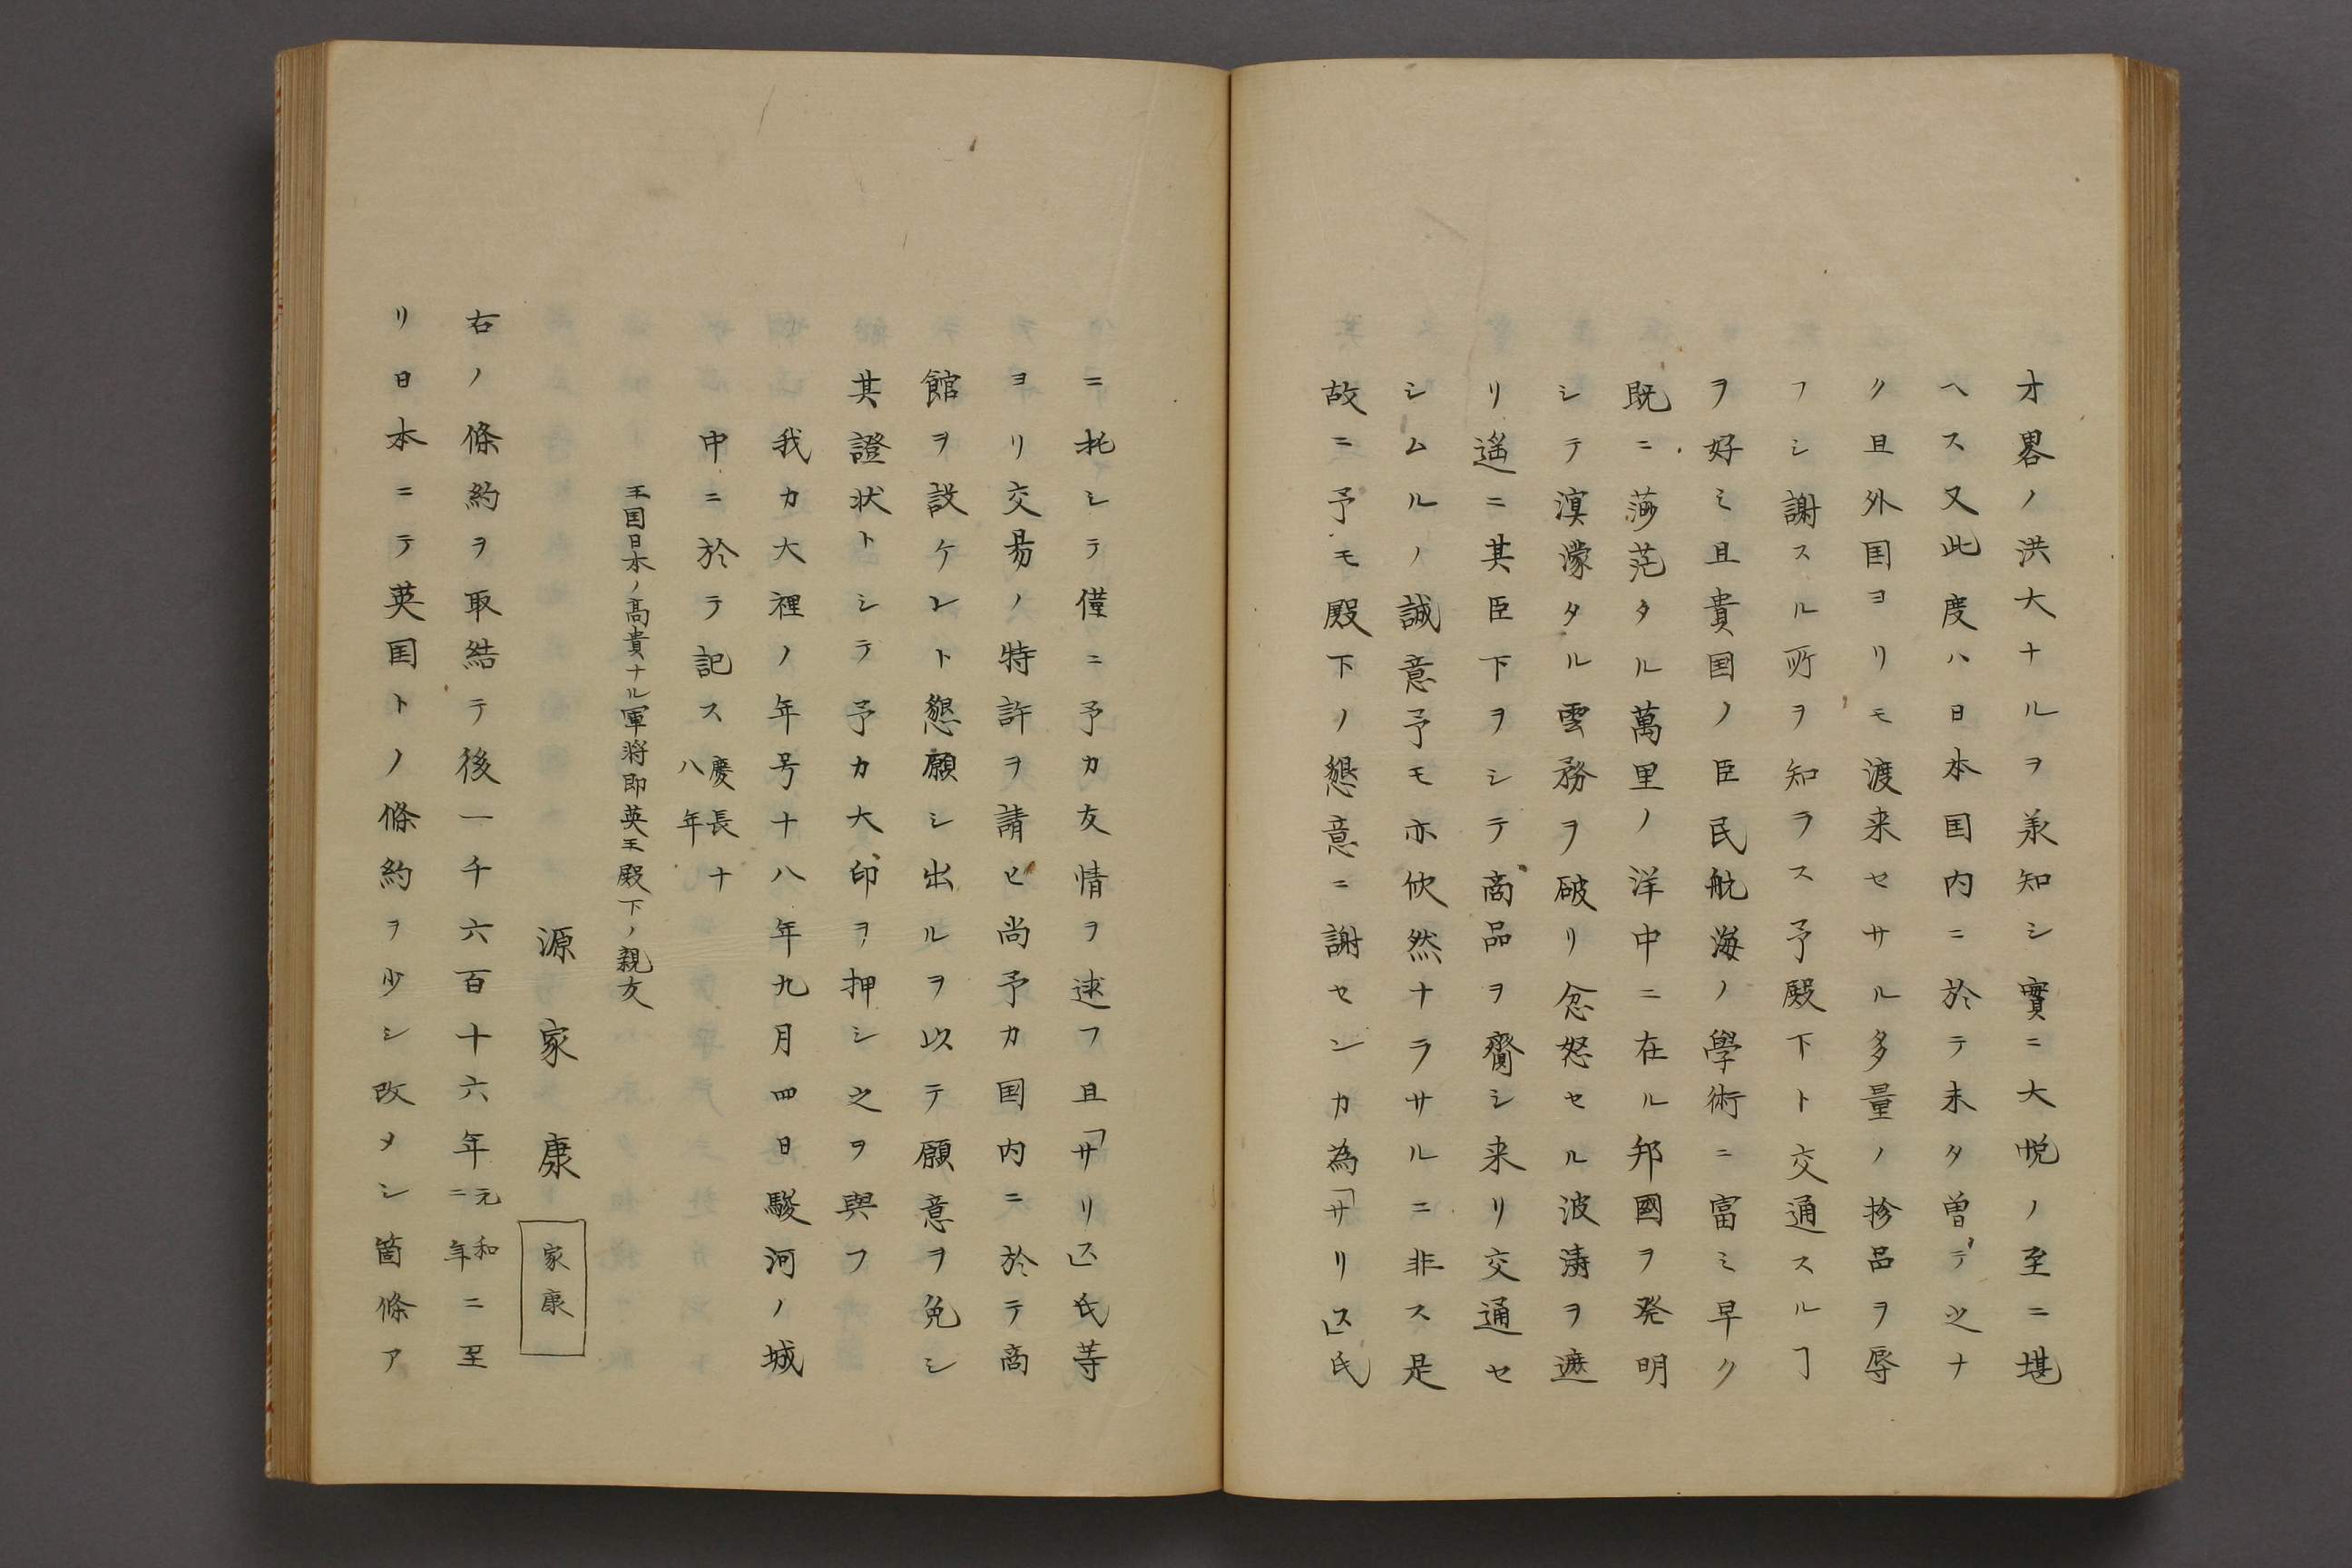 才畧ノ洪大ナルヲ羕知シ實ニ大悦ノ至ニ堪
ヘス又此度ハ日本国内ニ於テ未タ曽テ之ナ
ク且外国ヨリモ渡来セサル多量ノ珍品ヲ辱
フシ謝スル所ヲ知ラス予殿下ト交通スルヿ
ヲ好ミ且貴国ノ臣民航海ノ學術ニ富ミ早ク
既ニ莎茫タル萬里ノ洋中ニ在ル邦國ヲ発明
シテ溟濛タル雲務ヲ破リ忿怒セル波濤ヲ遮
リ遥ニ其臣下ヲシテ商品ヲ齎シ来リ交通セ
シムルノ誠意予モ亦忻然ナラサルニ非ス是
故ニ予モ殿下ノ懇意ニ謝センカ為「サリス」氏
ニ托シテ僅ニ予カ友情ヲ逑フ且「サリス」氏等
ヨリ交易ノ特許ヲ請ヒ尚予カ国内ニ於テ商
館ヲ設ケンﾄ懇願シ出ルヲ以テ願意ヲ免シ
其證状トシテ予カ大印ヲ押シ之ヲ與フ
我カ大裡ノ年号十八年九月四日駿河ノ城
中ニ於テ記ス慶長十八年
王国日本ノ高貴ナル軍将即英王殿下ノ親友
源家康 家康
右ノ條約ヲ取結テ後一千六百十六年元和二年ニ至
リ日本ニテ英国トノ條約ヲ少シ改メシ箇條ア